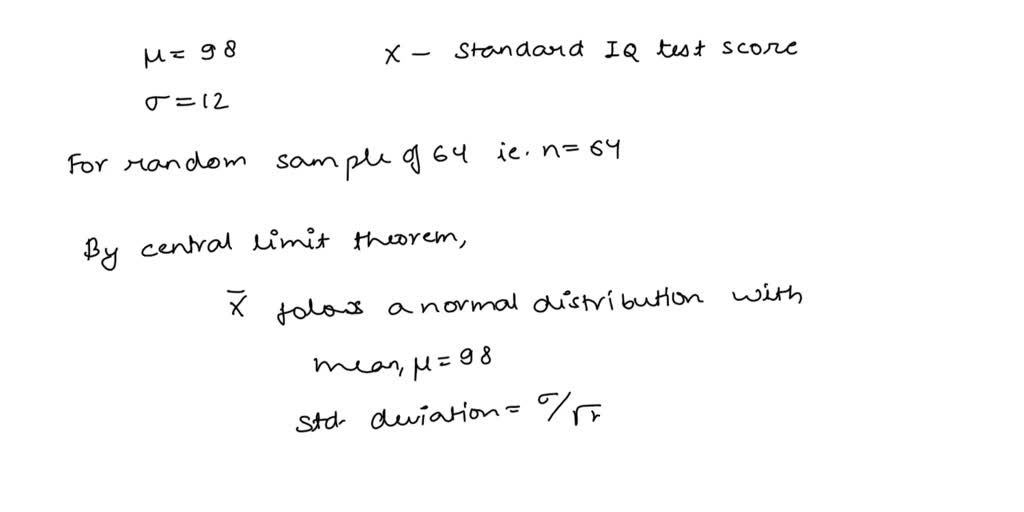 μ = 98 X – Standard IQ test score
σ = 12
For random sample of 64 ie. n = 64
By central limit theorem,
X̄ follows a normal distribution with
mean, μ = 98
std deviation = σ/√n